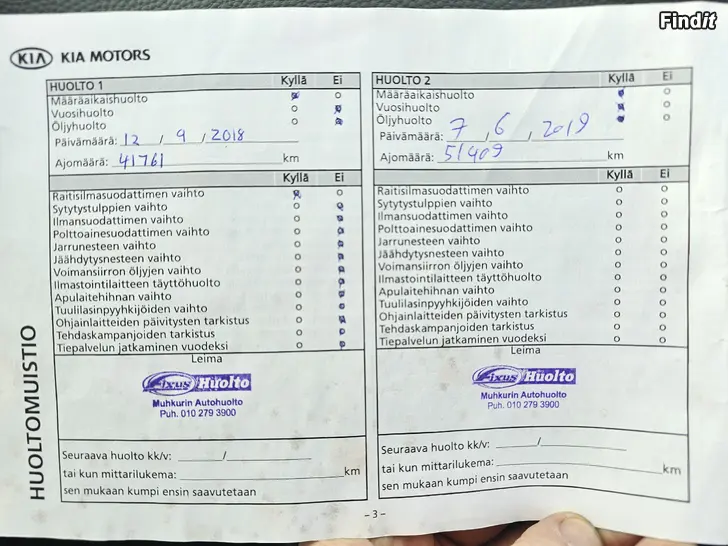 Findit
KIA KIA MOTORS
HUOLTOMUISTIO
HUOLTO 1 Kyllä Ei
Määräaikaishuolto
Vuosihuolto
Öljyhuolto
Päivämäärä: 12 / 9 / 2018
Ajomäärä: 41761 km
Kyllä Ei
Raitisilmasuodattimen vaihto
Sytytystulppien vaihto
Ilmansuodattimen vaihto
Polttoainesuodattimen vaihto
Jarrunesteen vaihto
Jäähdytysnesteen vaihto
Voimansiirron öljyjen vaihto
Ilmastointilaitteen täyttöhuolto
Apulaitehihnan vaihto
Tuulilasinpyyhkijöiden vaihto
Ohjainlaitteiden päivitysten tarkistus
Tehdaskampanjoiden tarkistus
Tiepalvelun jatkaminen vuodeksi
Leima
Fixus Huolto
Muhkurin Autohuolto
Puh. 010 279 3900
Seuraava huolto kk/v: /
tai kun mittarilukema: km
sen mukaan kumpi ensin saavutetaan
HUOLTO 2 Kyllä Ei
Määräaikaishuolto
Vuosihuolto
Öljyhuolto
Päivämäärä: 7 / 6 / 2019
Ajomäärä: 51409 km
Kyllä Ei
Raitisilmasuodattimen vaihto
Sytytystulppien vaihto
Ilmansuodattimen vaihto
Polttoainesuodattimen vaihto
Jarrunesteen vaihto
Jäähdytysnesteen vaihto
Voimansiirron öljyjen vaihto
Ilmastointilaitteen täyttöhuolto
Apulaitehihnan vaihto
Tuulilasinpyyhkijöiden vaihto
Ohjainlaitteiden päivitysten tarkistus
Tehdaskampanjoiden tarkistus
Tiepalvelun jatkaminen vuodeksi
Leima
Fixus Huolto
Muhkurin Autohuolto
Puh. 010 279 3900
Seuraava huolto kk/v: /
tai kun mittarilukema: km
sen mukaan kumpi ensin saavutetaan
- 3 -